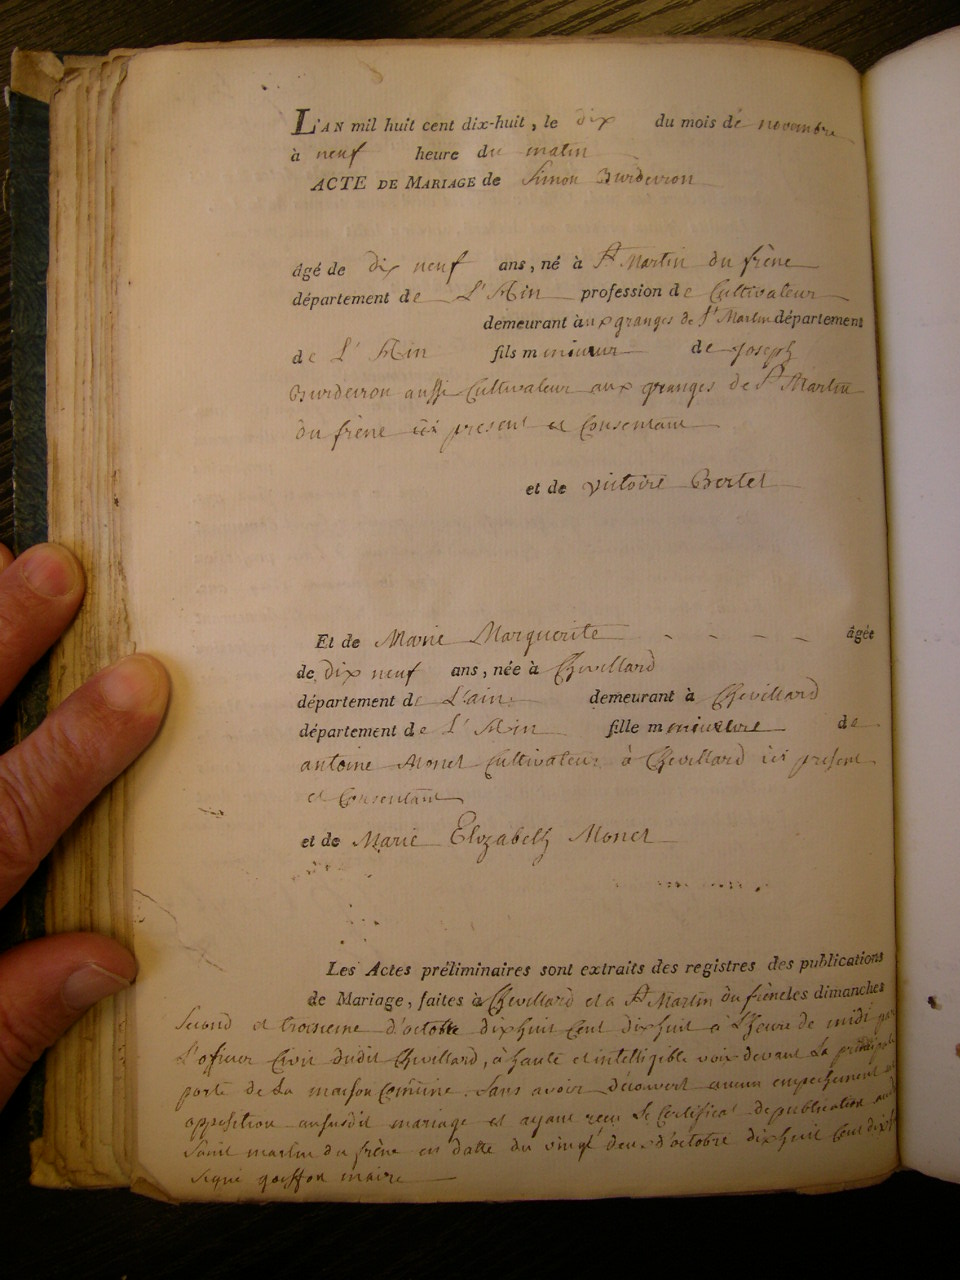 L'AN mil huit cent dix-huit, le dix du mois de novembre
à neuf heure du matin
ACTE DE MARIAGE de Simon Burdeyron
âgé de dix neuf ans, né à St Martin du frêne
département de L'Ain profession de Cultivateur
demeurant aux granges de St Martin département
de L'Ain fils mineur de Joseph
Burdeyron aussi Cultivateur aux granges de St Martin
du frêne ici present et Consentant
et de Victoire Bertet
Et de Marie Marguerite - - - - âgée
de dix neuf ans, née à Chevillard
département de L'ain demeurant à Chevillard
département de L'Ain fille mineure de
antoine Monet Cultivateur à Chevillard ici present
et Consentant
et de Marie Elizabeth Monet
Les Actes préliminaires sont extraits des registres des publications
de Mariage, faites à Chevillard et a St Martin du frêne les dimanches
Second et troisieme d'octobre dixhuit Cent dixhuit à L'heure de midi par
L'officier Civil dudit Chevillard, à haute et intelligible voix devant La principale
porte de La maison Commune. Sans avoir découvert aucun empechement ni
opposition aususdit mariage et ayant recu Le Certificat de publication
Saint martin du frêne en datte du vingt deux d'octobre dixhuit Cent dixh
signé goiffon maire